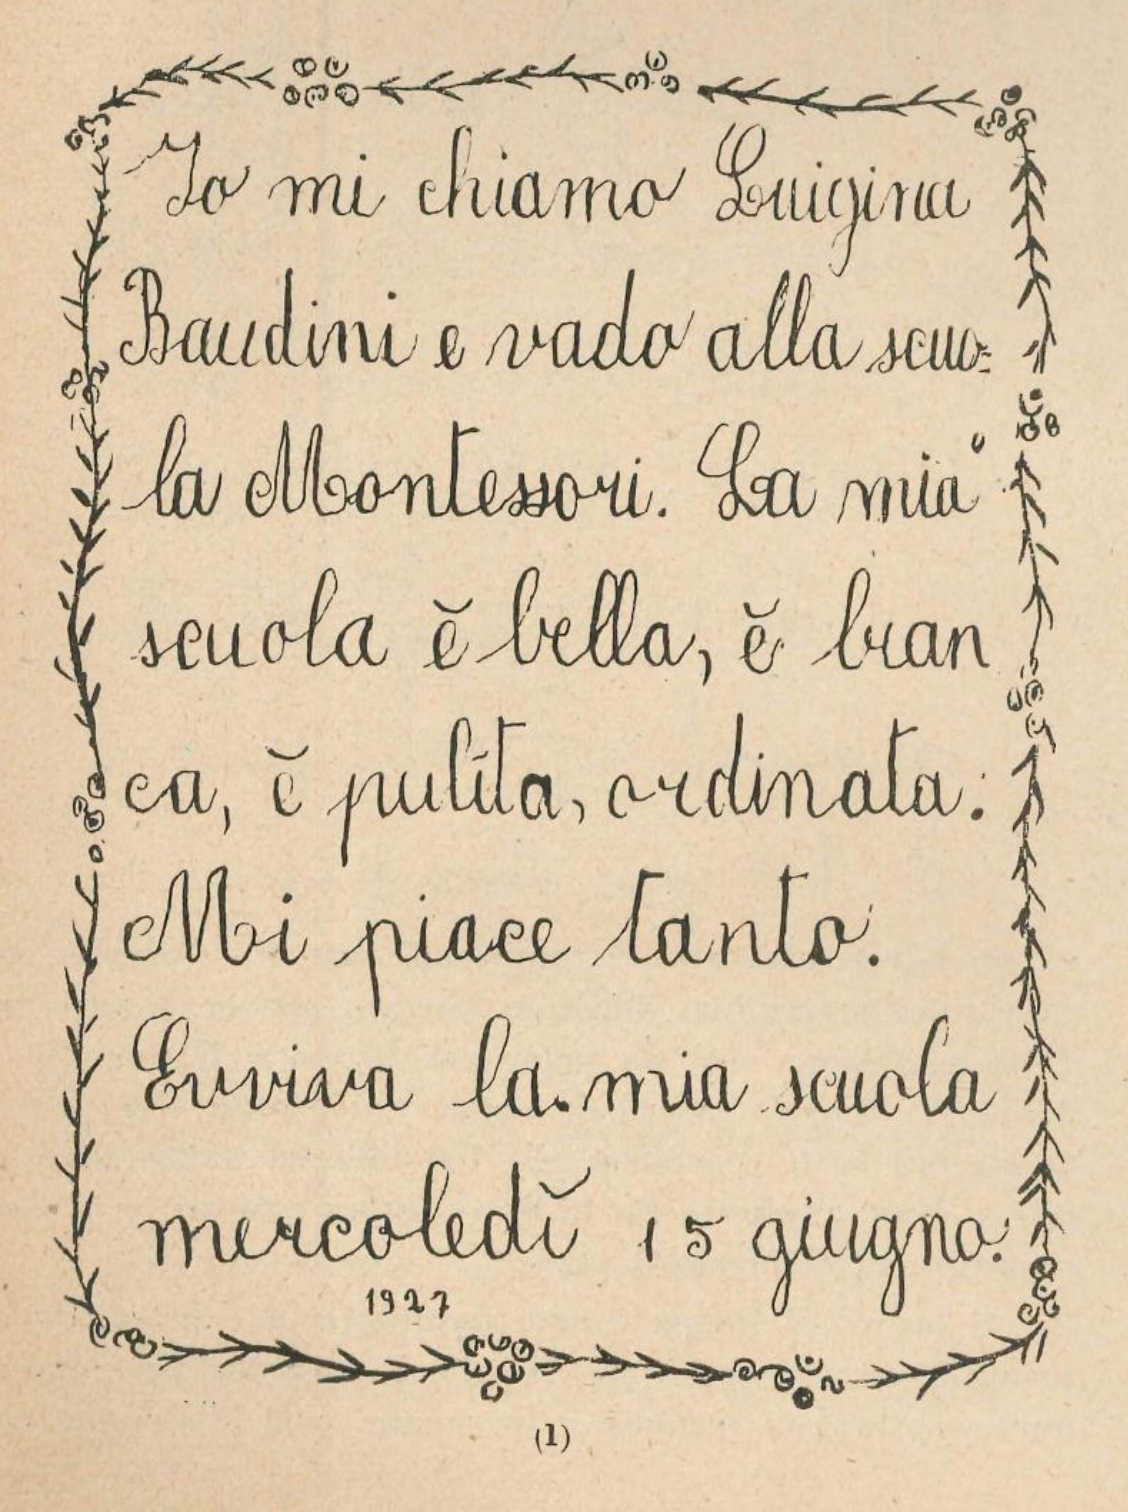 Io mi chiamo Luigina
Baudini e vado alla scuo=
la Montessori. La mia
scuola ĕ bella, ĕ bian
ca, ĕ pulita, ordinata.
Mi piace tanto.
Evviva la mia scuola
mercoledĭ 15 giugno.
1927
(1)